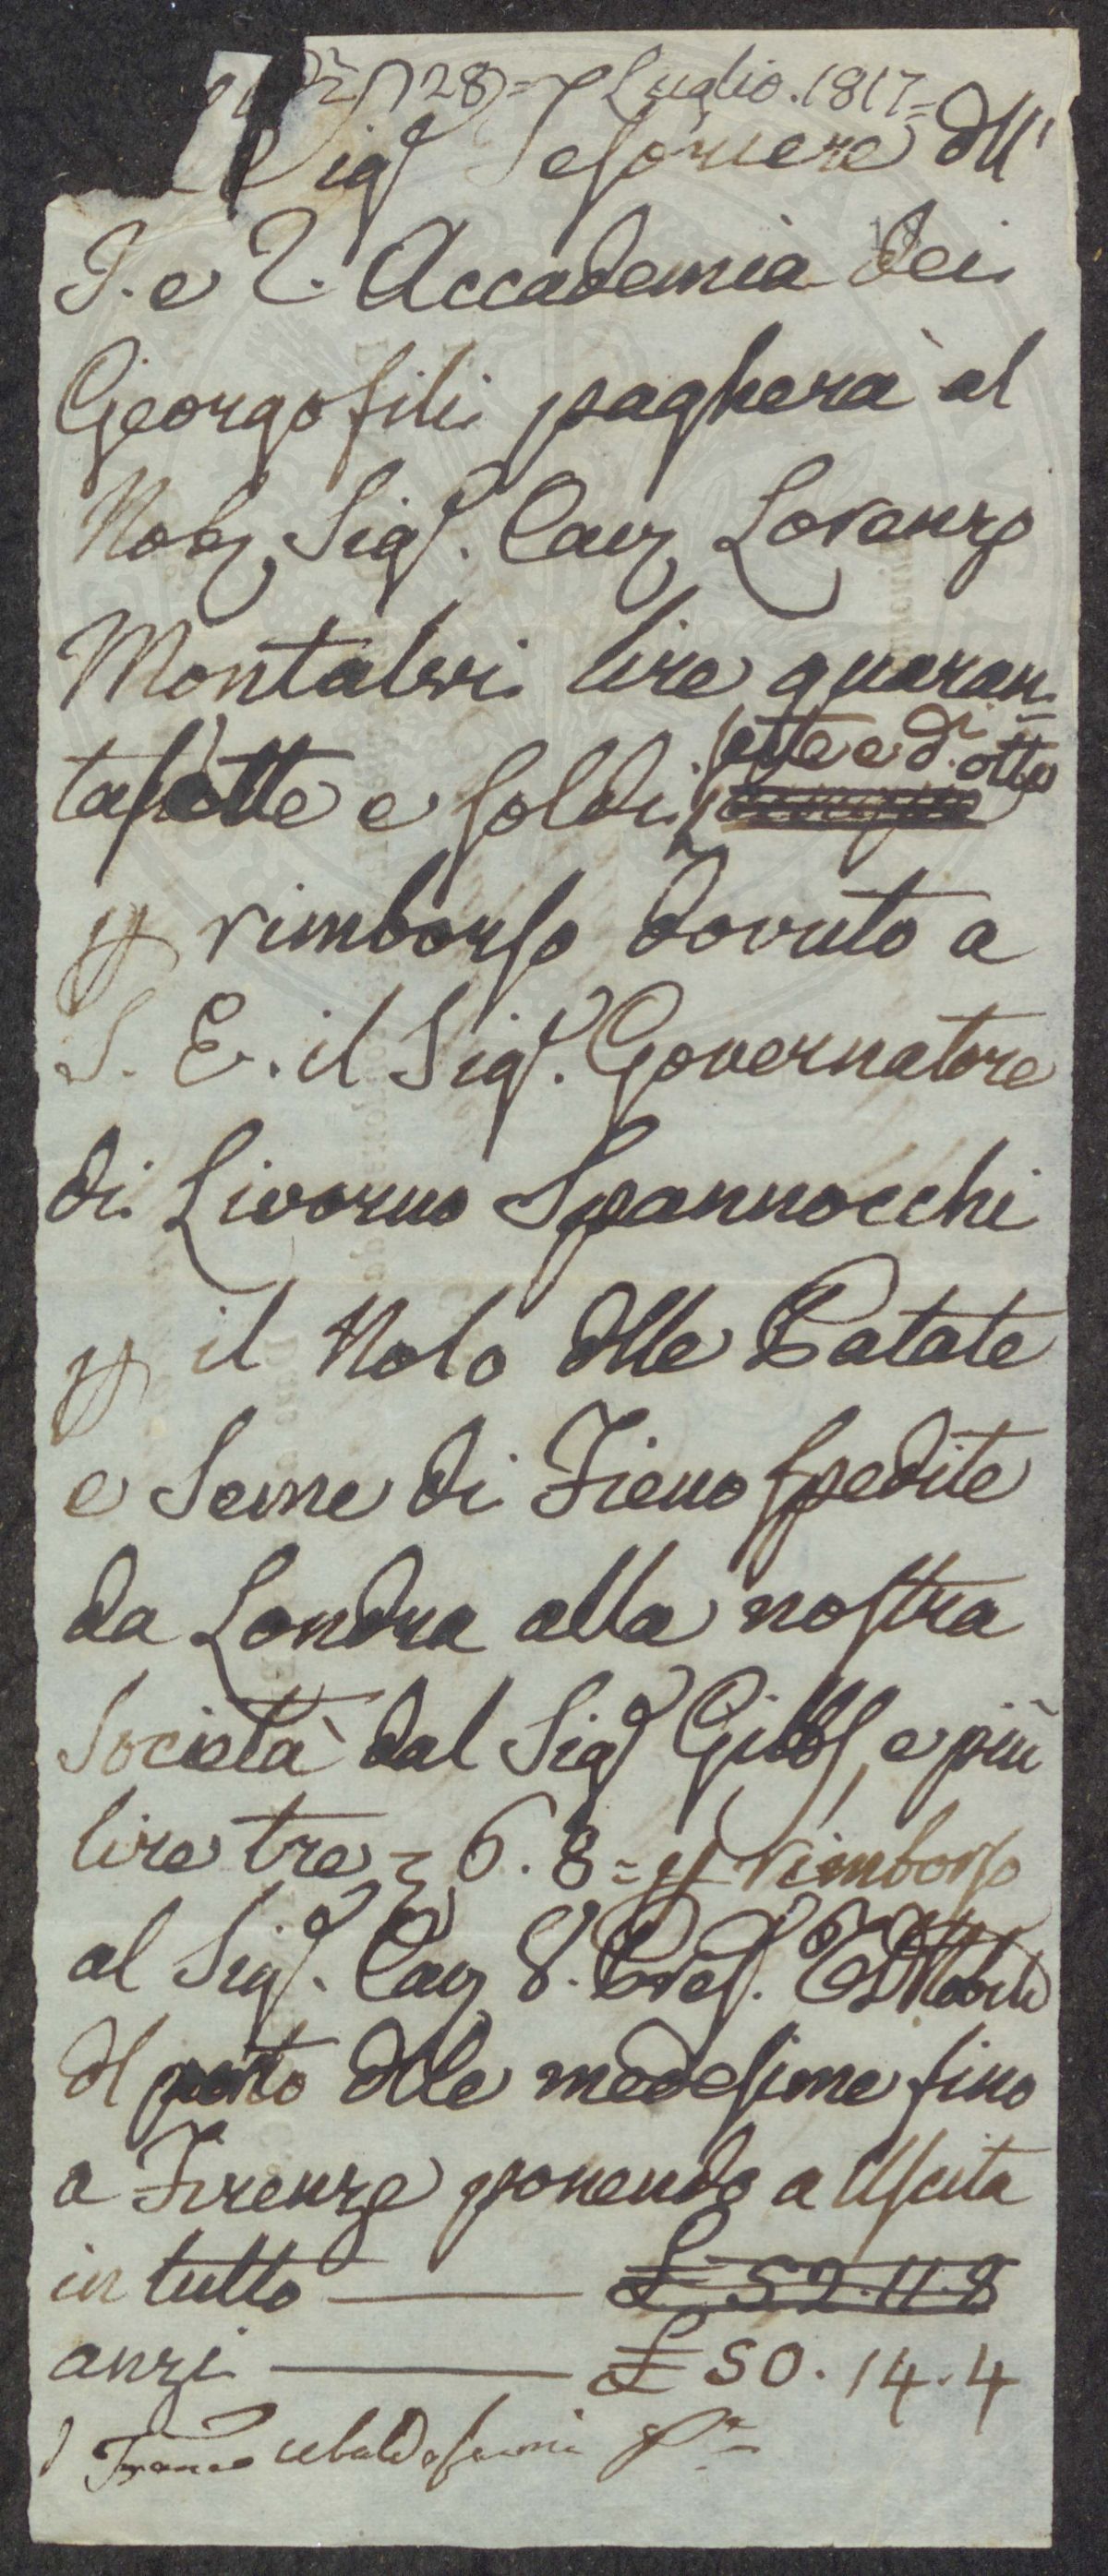 28 = 7 Luglio. 1817 =
Sig.r Tesoriere dll'
I. e R. Accademia dei
Georgofili pagherà al
Nob. Sig.r Cav. Lorenzo
Montalvi lire quaran=
tasette e soldi sette e d. otto
p rimborso dovuto a
S. E. il Sig.r Governatore
di Livorno Spannocchi
p il Nolo dlle Patate
e Seme di Fieno spedite
da Londra alla nostra
Società dal Sig.r Gibbs, e più
lire tre = 6. 8 = p rimborso
al Sig.r Cav. V. Pres.
dl porto dlle medesime fino
a Firenze ponendo a Uscita
in tutto — £ 52. 11. 8
anzi — £ 50. 14. 4